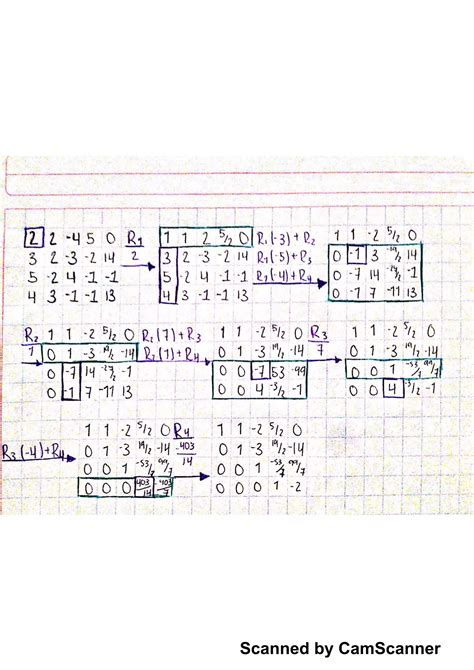 2 2 -4 5 0 R1 1 1 2 5/2 0 R1(-3)+R2 1 1 -2 5/2 0
3 2 -3 -2 14 2 3 2 -3 -2 14 R1(-5)+R3 0 -1 3 -19/2 14
5 -2 4 -1 -1 5 -2 4 -1 -1 R1(-4)+R4 0 -7 14 -27/2 -1
4 3 -1 -1 13 4 3 -1 -1 13 0 -1 7 -11 13
R2 1 1 -2 5/2 0 R2(7)+R3 1 1 -2 5/2 0 R3 1 1 -2 5/2 0
1 0 1 -3 19/2 -14 R2(1)+R4 0 1 -3 19/2 -14 7 0 1 -3 19/2 -14
0 -7 14 -27/2 -1 0 0 -7 53 -99 0 0 1 -53/7 99/7
0 -1 7 -11 13 0 0 4 -3/2 -1 0 0 4 -3/2 -1
1 1 -2 5/2 0 R4 1 1 -2 5/2 0
R3(-4)+R4 0 1 -3 19/2 -14 403 0 1 -3 19/2 -14
0 0 1 -53/7 99/7 14 0 0 1 -53/7 99/7
0 0 0 403/14 -403/7 0 0 0 1 -2
Scanned by CamScanner